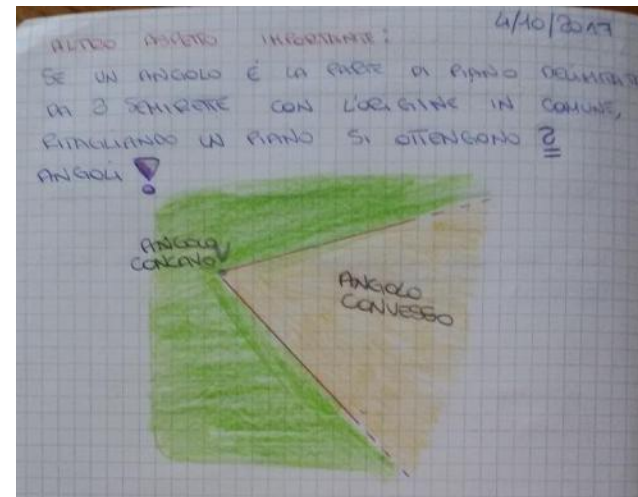 4/10/2017
ALTRO ASPETTO IMPORTANTE:
SE UN ANGOLO É LA PARTE DI PIANO DELIMITATA
DA 2 SEMIRETTE CON L'ORIGINE IN COMUNE,
RITAGLIANDO UN PIANO SI OTTENGONO 2
ANGOLI!
ANGOLO
CONCAVO
ANGOLO
CONVESSO